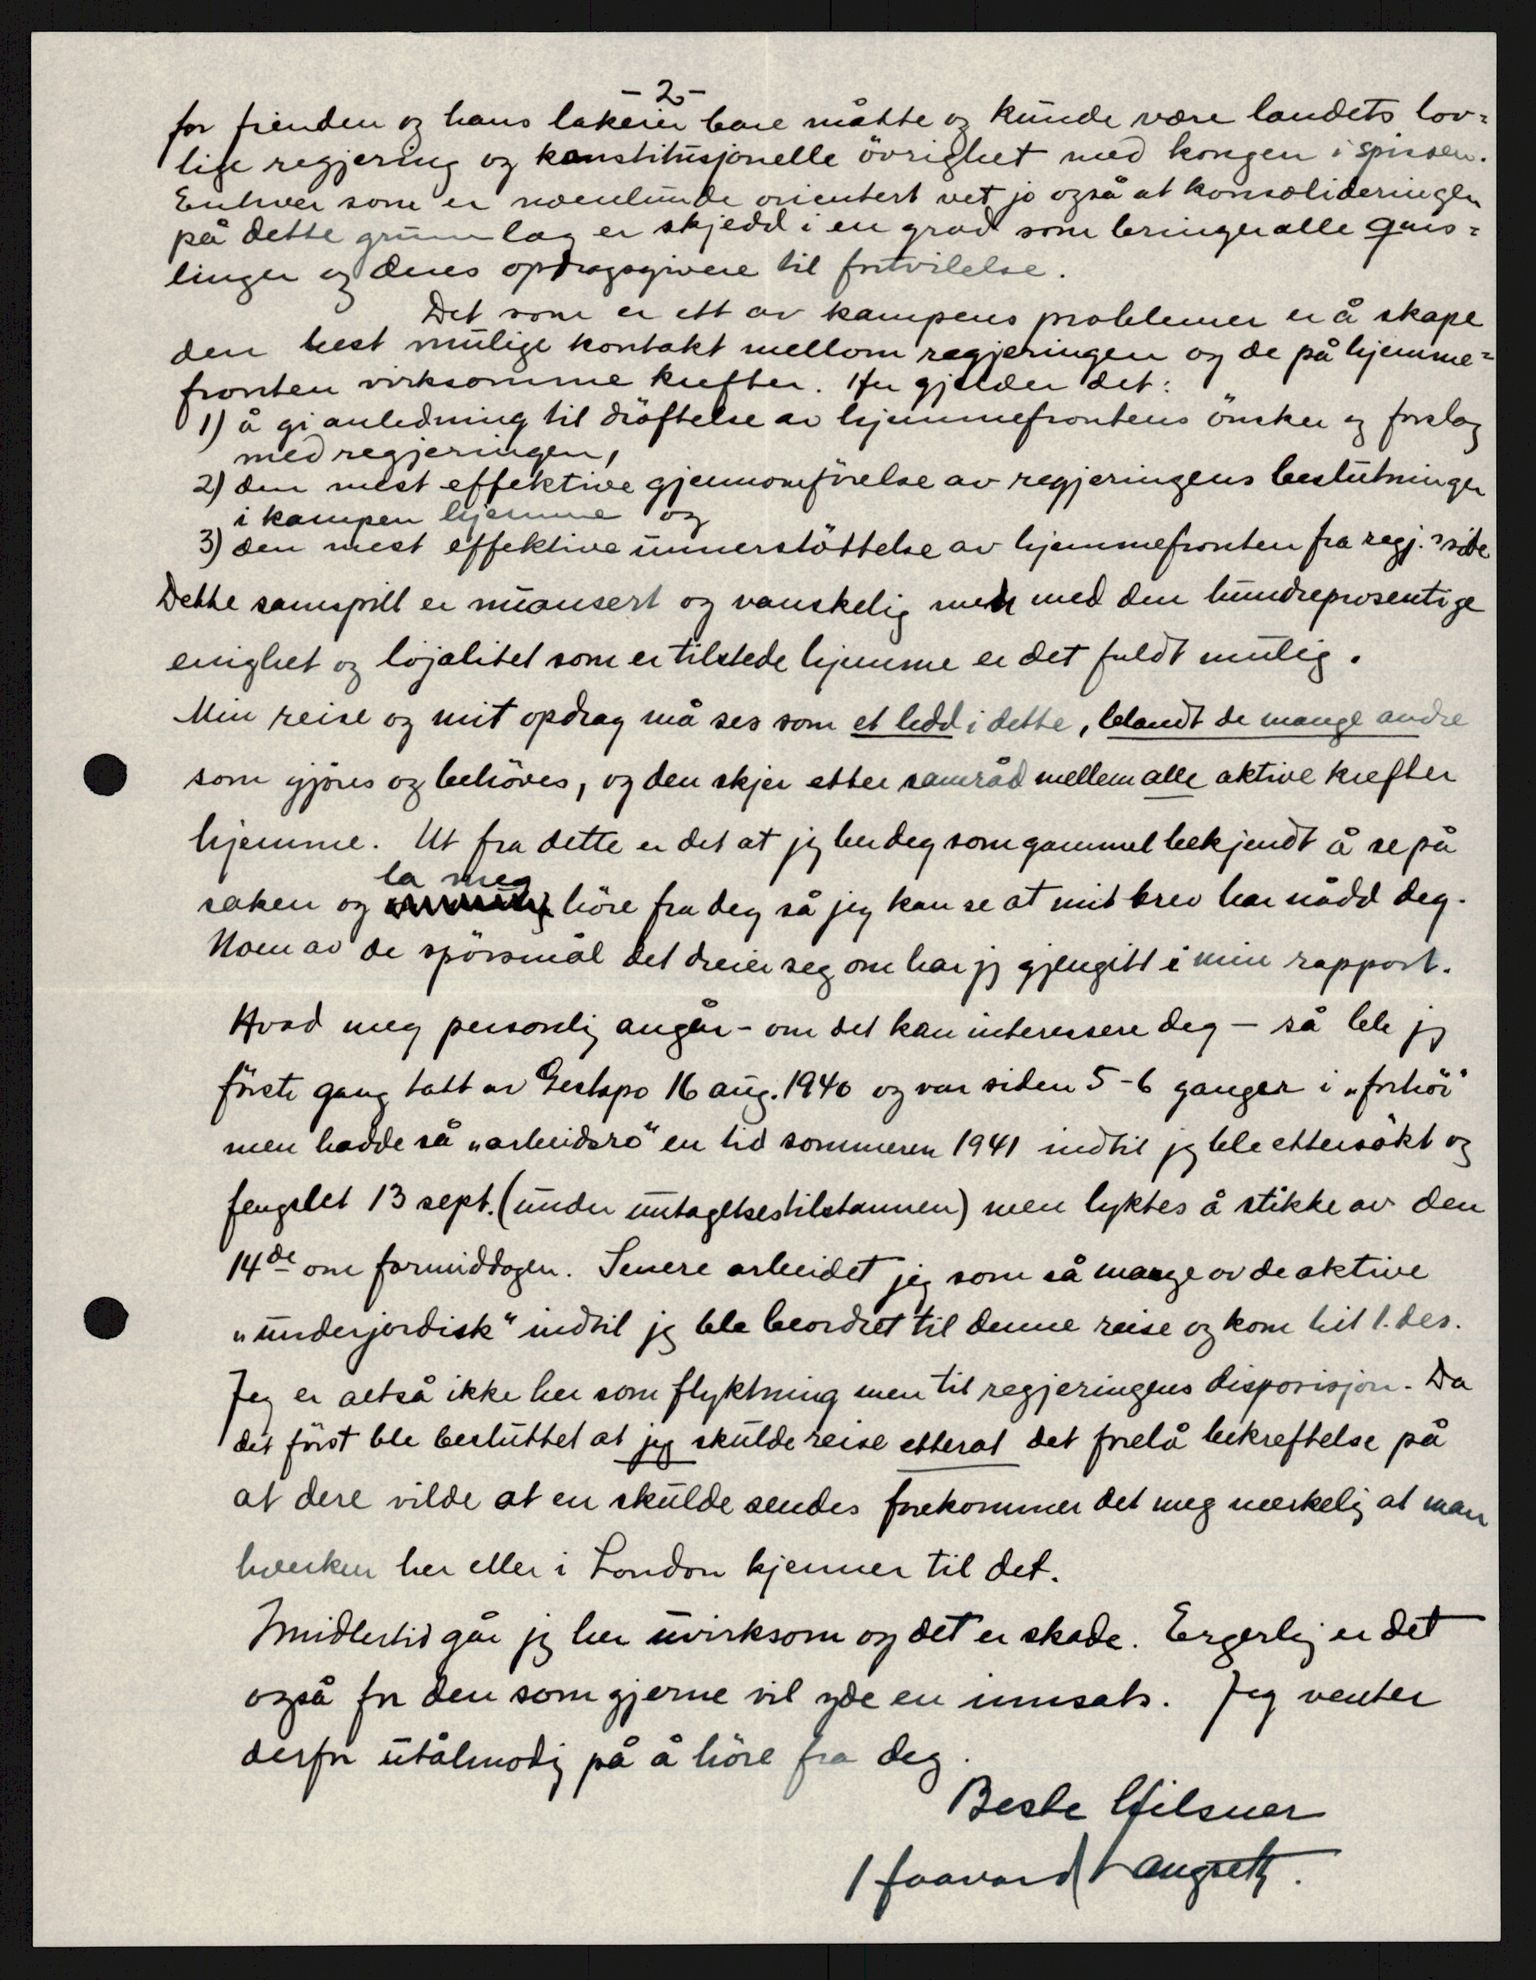 - 2 -
for fienden og hans lakeier bare måtte og kunde være landets lov=
lige regjering og konstitusjonelle övrighet med kongen i spissen.
Enhver som er noenlunde orientert vet jo også at konsolideringen
på dette grunnlag er skjedd i en grad som bringer alle quis=
linger og deres opdragsgivere til fortvilelse.
Det som er ett av kampens problemer er å skape
den best mulige kontakt mellom regjeringen og de på hjemme=
fronten virksomme krefter. Her gjelder det:
1) å gi anledning til dröftelse av hjemmefrontens önsker og forslag
med regjeringen,
2) den mest effektive gjennomförelse av regjeringens beslutninger
i kampen hjemme og
3) den mest effektive understöttelse av hjemmefronten fra regj.s side
Dette samspill er nuansert og vanskelig men med den hundreprosentige
enighet og lojalitet som er tilstede hjemme er det fuldt mulig.
Min reise og mit opdrag må ses som et ledd i dette, blandt de mange andre
som gjöres og behöves, og den skjer etter samråd mellem alle aktive krefter
hjemme. Ut fra dette er det at jeg ber deg som gammel bekjendt å se på
saken og la meg höre fra deg så jeg kan se at mit brev har nådd deg.
Noen av de spörsmål det dreier seg om har jeg gjengitt i min rapport.
Hvad meg personlig angår - om det kan interessere deg - så ble jeg
förste gang tatt av Gestapo 16 aug. 1940 og var siden 5-6 ganger i „forhör"
men hadde så „arbeidsro" en tid sommeren 1941 indtil jeg ble ettersökt og
fengslet 13 sept. (under untagelsestilstannen) men lyktes å stikke av den
14de om formiddagen. Senere arbeidet jeg som så mange av de aktive
„underjordisk" indtil jeg ble beordret til denne reise og kom hit 1. des.
Jeg er altså ikke her som flyktning men til regjeringens disposisjon. Da
det först ble besluttet at jeg skulde reise etterat det forelå bekreftelse på
at dere vilde at en skulde sendes forekommer det meg merkelig at man
hverken her eller i London kjenner til det.
Imidlertid går jeg her uvirksom og det er skade. Ergerlig er det
også for den som gjerne vil yde en innsats. Jeg venter
derfor utålmodig på å höre fra deg.
Beste hilsner
Haavard Langseth.